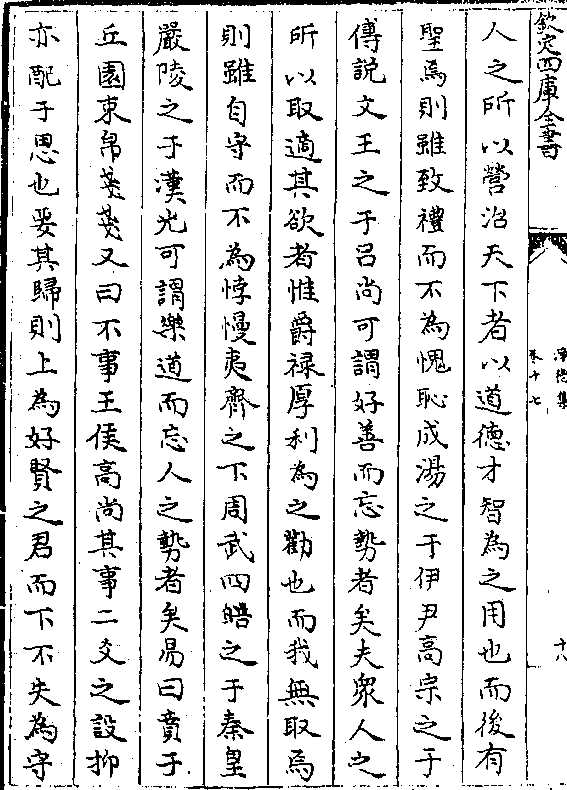 欽定四庫全書
淨德集
卷十七
十八
人之所以營治天下者以道德才智為之用也而後有
聖焉則雖致禮而不為愧恥成湯之于伊尹高宗之于
傅説文王之于呂尚可謂好善而忘勢者矣夫衆人之
所以取適其欲者惟爵祿厚利為之勸也而我無取焉
則雖自守而不為悖慢夷齊之下周武四皓之于秦皇
嚴陵之于漢光可謂樂道而忘人之勢者矣易曰賁于
丘園束帛戔戔又曰不事王侯高尚其事二爻之設抑
亦配于思也要其歸則上為好賢之君而下不失為守